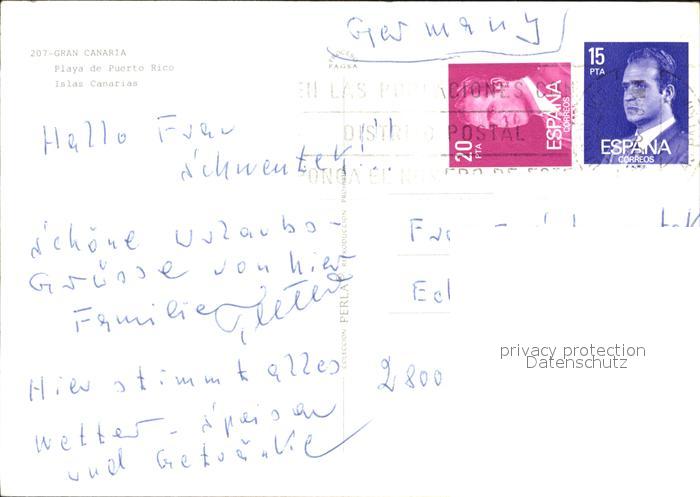 Germany
207-GRAN CANARIA
Playa de Puerto Rico
Islas Canarias
FAGRA
EN LAS POBLACIONES CON
DISTRITO POSTAL
PONGA EL NUMERO DE ESTE
20 PTA
ESPAÑA
CORREOS
15 PTA
ESPAÑA
CORREOS
Hallo Frau
Schwenter!!
schöne Urlaubs-
Grüsse von hier
Familie
Hier stimmt alles
Wetter - Speisen
und Getränke
COLECCION PERLA
REPRODUCCION
2800
privacy protection
Datenschutz